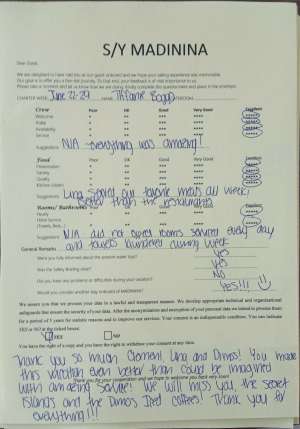 S/Y MADININA
Dear Guest,
We are delighted to have had you as our guest onboard and we hope your sailing experience was memorable.
Our goal is to offer you a first-rate journey. To that end, your feedback is of vital importance to us.
Please take a moment and let us know how we are doing. Kindly complete this questionnaire and place it in the envelope.
CHARTER WEEK: June 22-29 NAME: Tiffanie Boggs
Crew Poor OK Good Very Good Excellent
Welcome * ** *** **** *****
Polite * ** *** **** *****
Availability * ** *** **** *****
Service * ** *** **** *****
Suggestions: N/A - everything was amazing!
Food Poor OK Good Very Good Excellent
Presentation * ** *** **** *****
Variety * ** *** **** *****
Quality * ** *** **** *****
Kitchen (clean) * ** *** **** *****
Suggestions: Ling served our favorite meals all week!
Better than the restaurants
Rooms/ Bathrooms Poor OK Good Very Good Excellent
Suggestions: N/A did not expect rooms serviced every day
and towels laundered during week
General Remarks
Were you fully informed about the onboard water toys? Yes
Was the Safety Briefing clear? Yes
Did you have any problems or difficulties during your vacation? No
Would you consider another trip onboard of MADININA? Yes!!!
We assure you that we process your data in a lawful and transparent manner. We develop appropriate technical and organizational
safeguards that ensure the security of your data. After the anonymization and encryption of your personal data we intend to process them
for a period of 5 years for statistic reasons and to improve our services. Your consent is an indispensable condition. You can indicate
YES or NO in the ticked boxes.
YES NO
You have the right of a copy and you have the right to withdraw your consent at any time.
Thank you so much Clement, Ling and Dimos! You made
this vacation even better than could be imagined
Thank you for your presentation and we hope to welcome you back very soon!
with amazing service! We will miss you, the secret
islands and the Dimo's Iced coffees! Thank you for
everything!!!